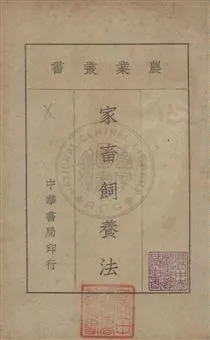 農業叢書
家畜飼養法
中華書局印行
NATIONAL CENTRAL LIBRARY